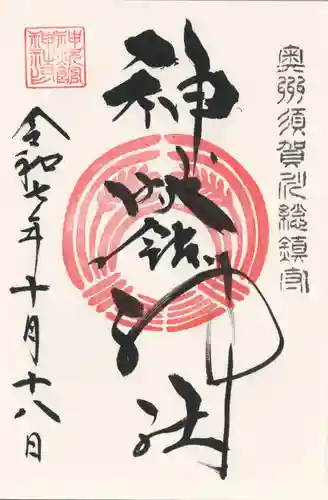 奥州須賀川総鎮守
神炊館神社
令和七年十月十八日